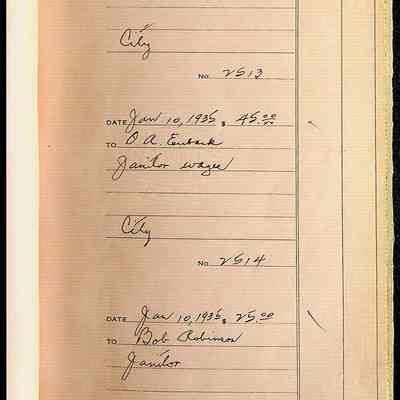 City
No. 2513
DATE Jan 10, 1935 $ 45.00
TO O A. Eubank
Janitor wages
City
No. 2514
DATE Jan 10, 1935 $ 25.00
TO Bob Robinson
Janitor